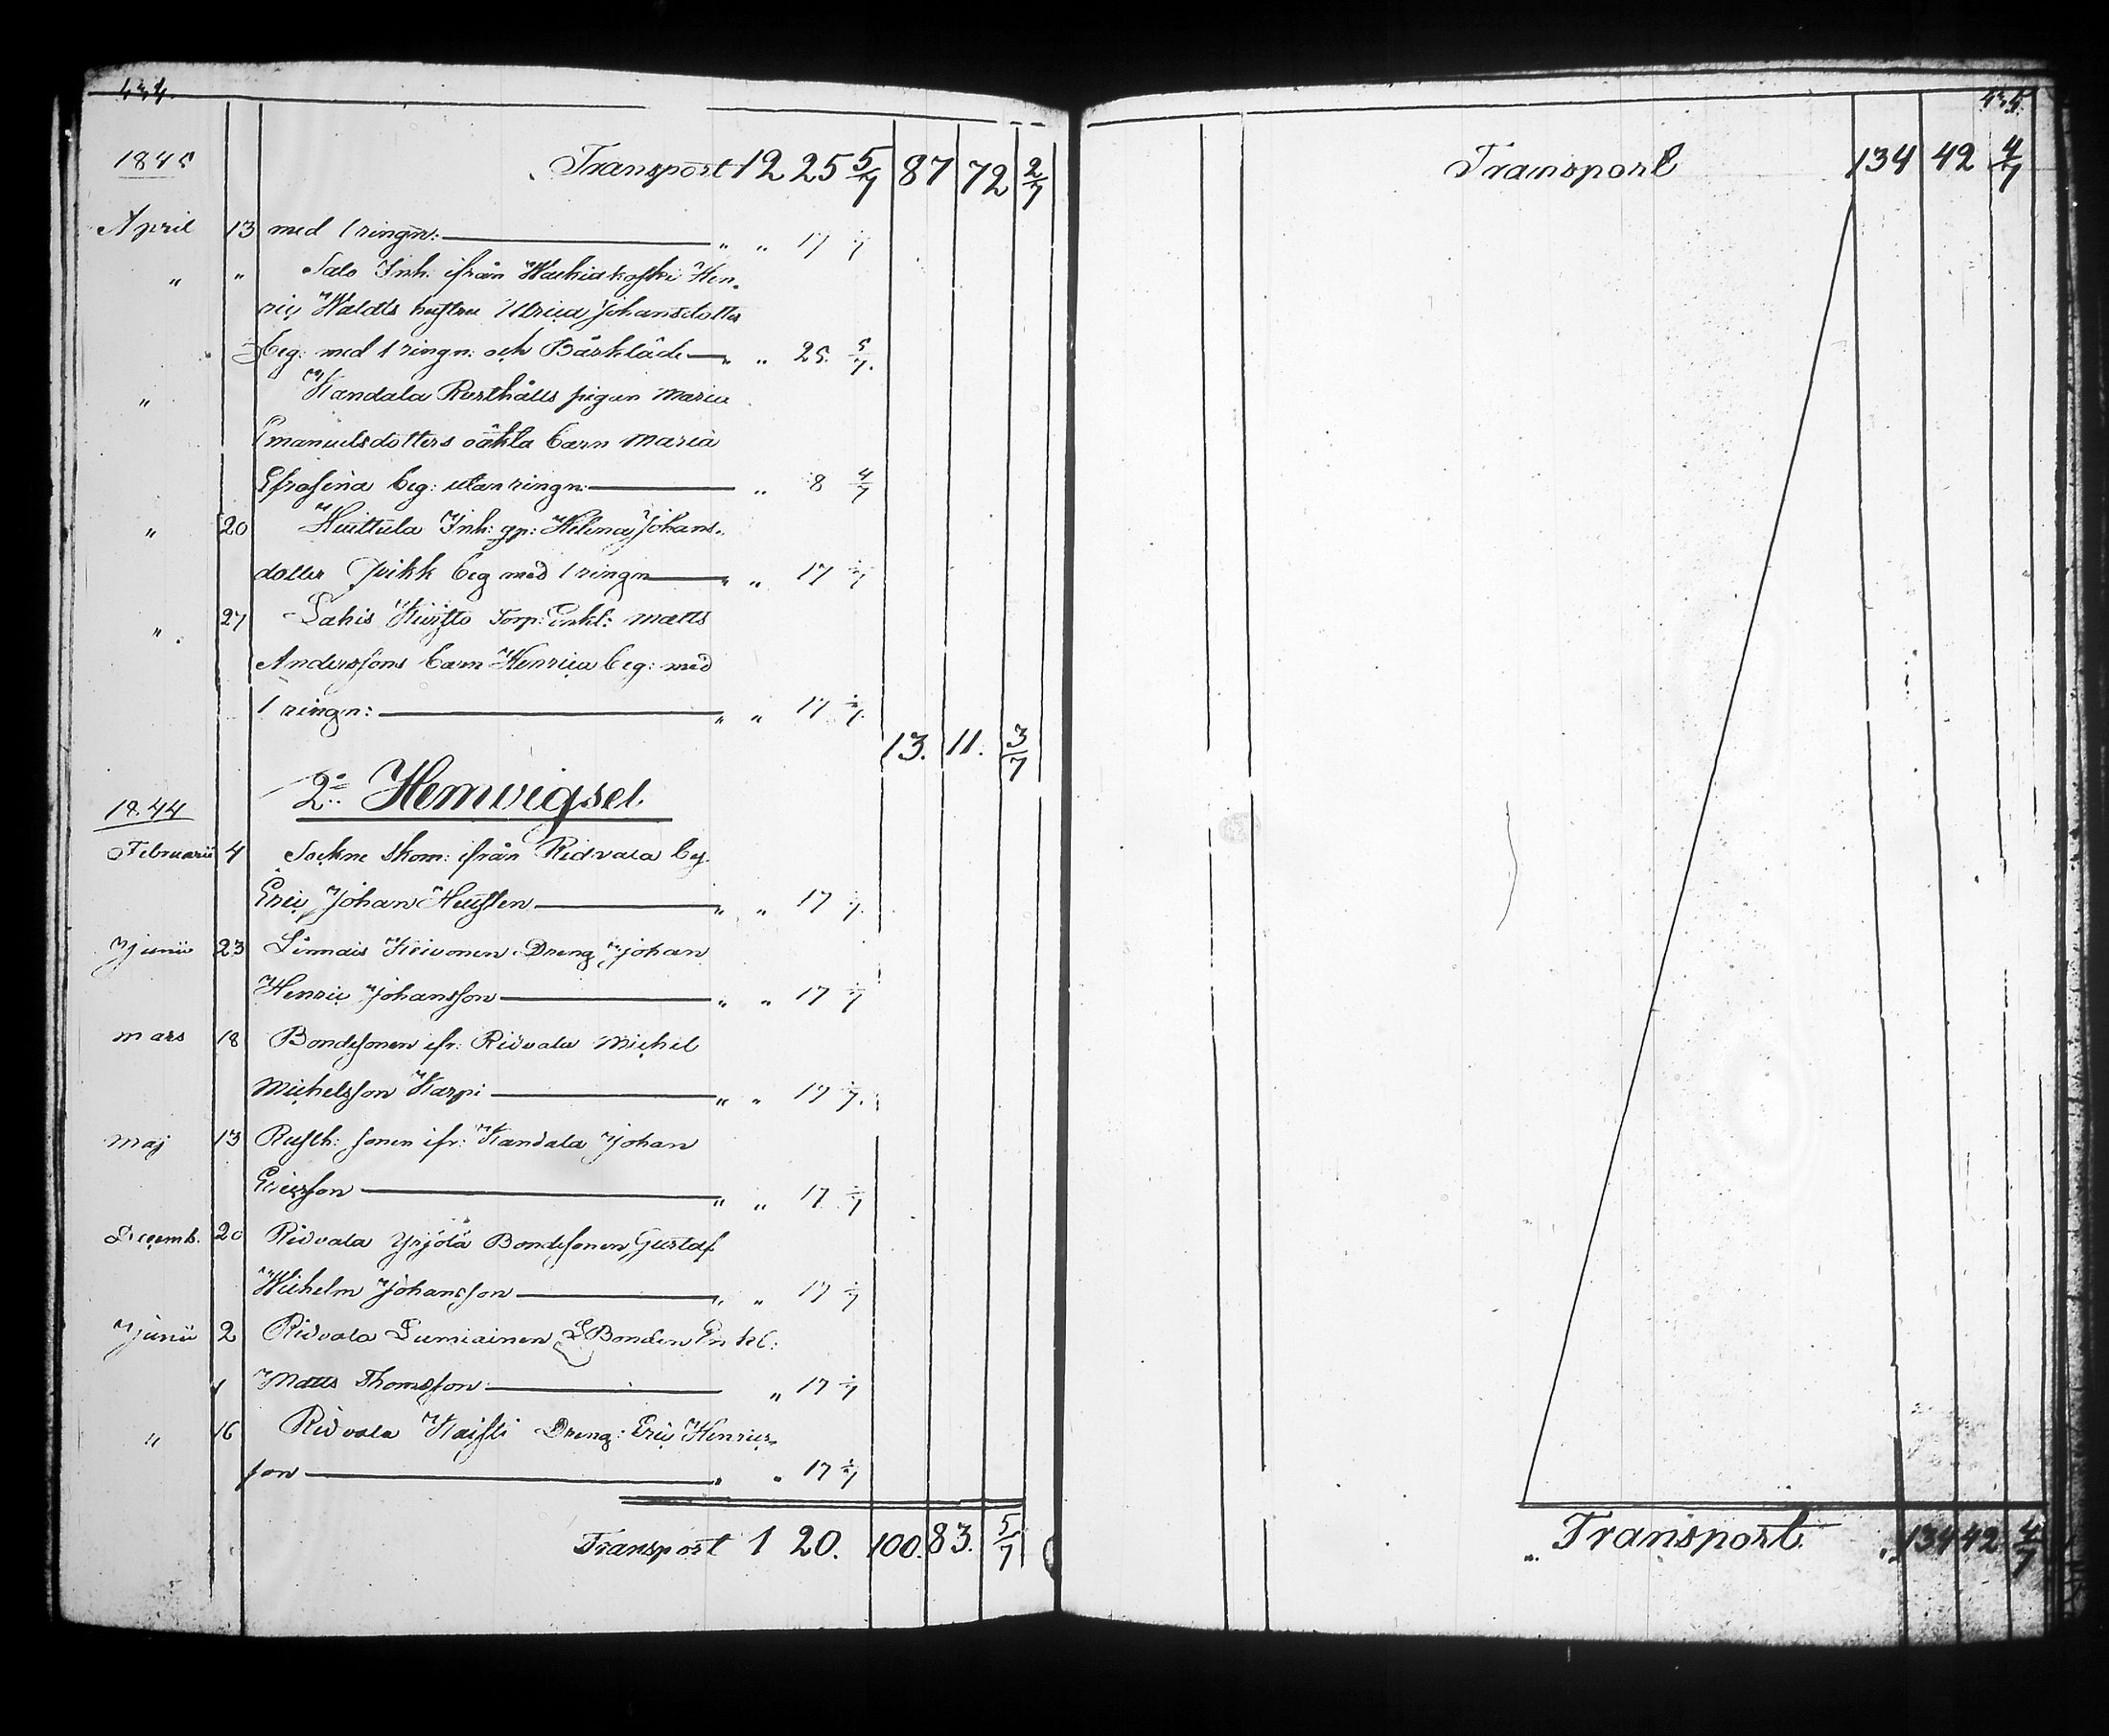 434.
1845 Transport 12 25 5/7 87 72 2/7
April 13 med 1 ringn: " " 17 1/7
" " Salo Inh. ifrån Wachiakoski Hen-
ric Waldts hustru Ulrica Johansdotter
beg: med 1 ringn: och Bårkläde " " 25. 5/7.
" Kandala Rusthålls pigan Maria
Emanuelsdotters oäkta barn Maria
Efrosina beg: utan ringn: " 8 4/7
" 20 Huittula Inh: gp: Helena Johans-
dotter beg med 1 ringn " " 17 1/7
" 27 Lahis Torp: Enkl: Matts
Anderssons barn Henrica beg: med
1 ringn: " " 17 1/7.
13. 11. 3/7
2o Hemvigsel.
1844
Februarii 4 Sockne Skom: ifrån Ridvala by
Eric Johan " " 17 1/7.
Junii 23 Linnais Koivonen Dreng Johan
Henric Johansson " " 17 1/7
Mars 18 Bondesonen ifr: Ridvala Michel
Michelsson Karpi " " 17 1/7.
Maj 13 Rusth: sonen ifr: Kandala Johan
Ericsson " " 17 1/7
Decemb. 20 Ridvala Yrjölä Bondesonen Gustaf
Wilhelm Johansson " " 17 1/7
Junii 2 Ridvala Lumiainen Bonden Enkl:
Matts Thomsson " 17 1/7
" 16 Ridvala Kaisti Dreng: Eric Henrics-
son " " 17 1/7
Transport 1 20. 100. 83. 5/7
435.
Transport 134 42 4/7
" Transport. " 134 42 4/7